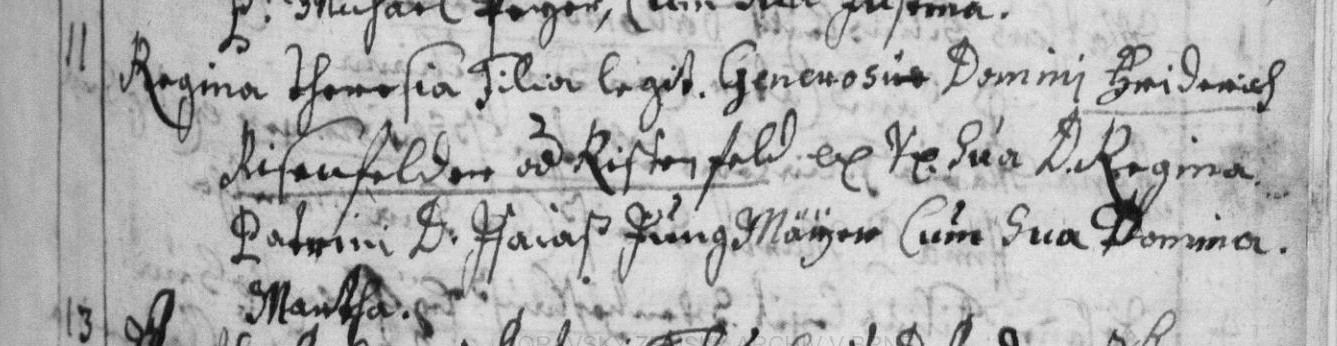 P. Michael Peyer, Cum sua Justina.
11 Regina Theresia Filia legit. Generosus Domini Friderich
Risenfelder od Ristenfeld ex Vx. Sua D. Regina.
Patrini D. Isaias Jung Mäyer Cum Sua Domina.
Martha.
13